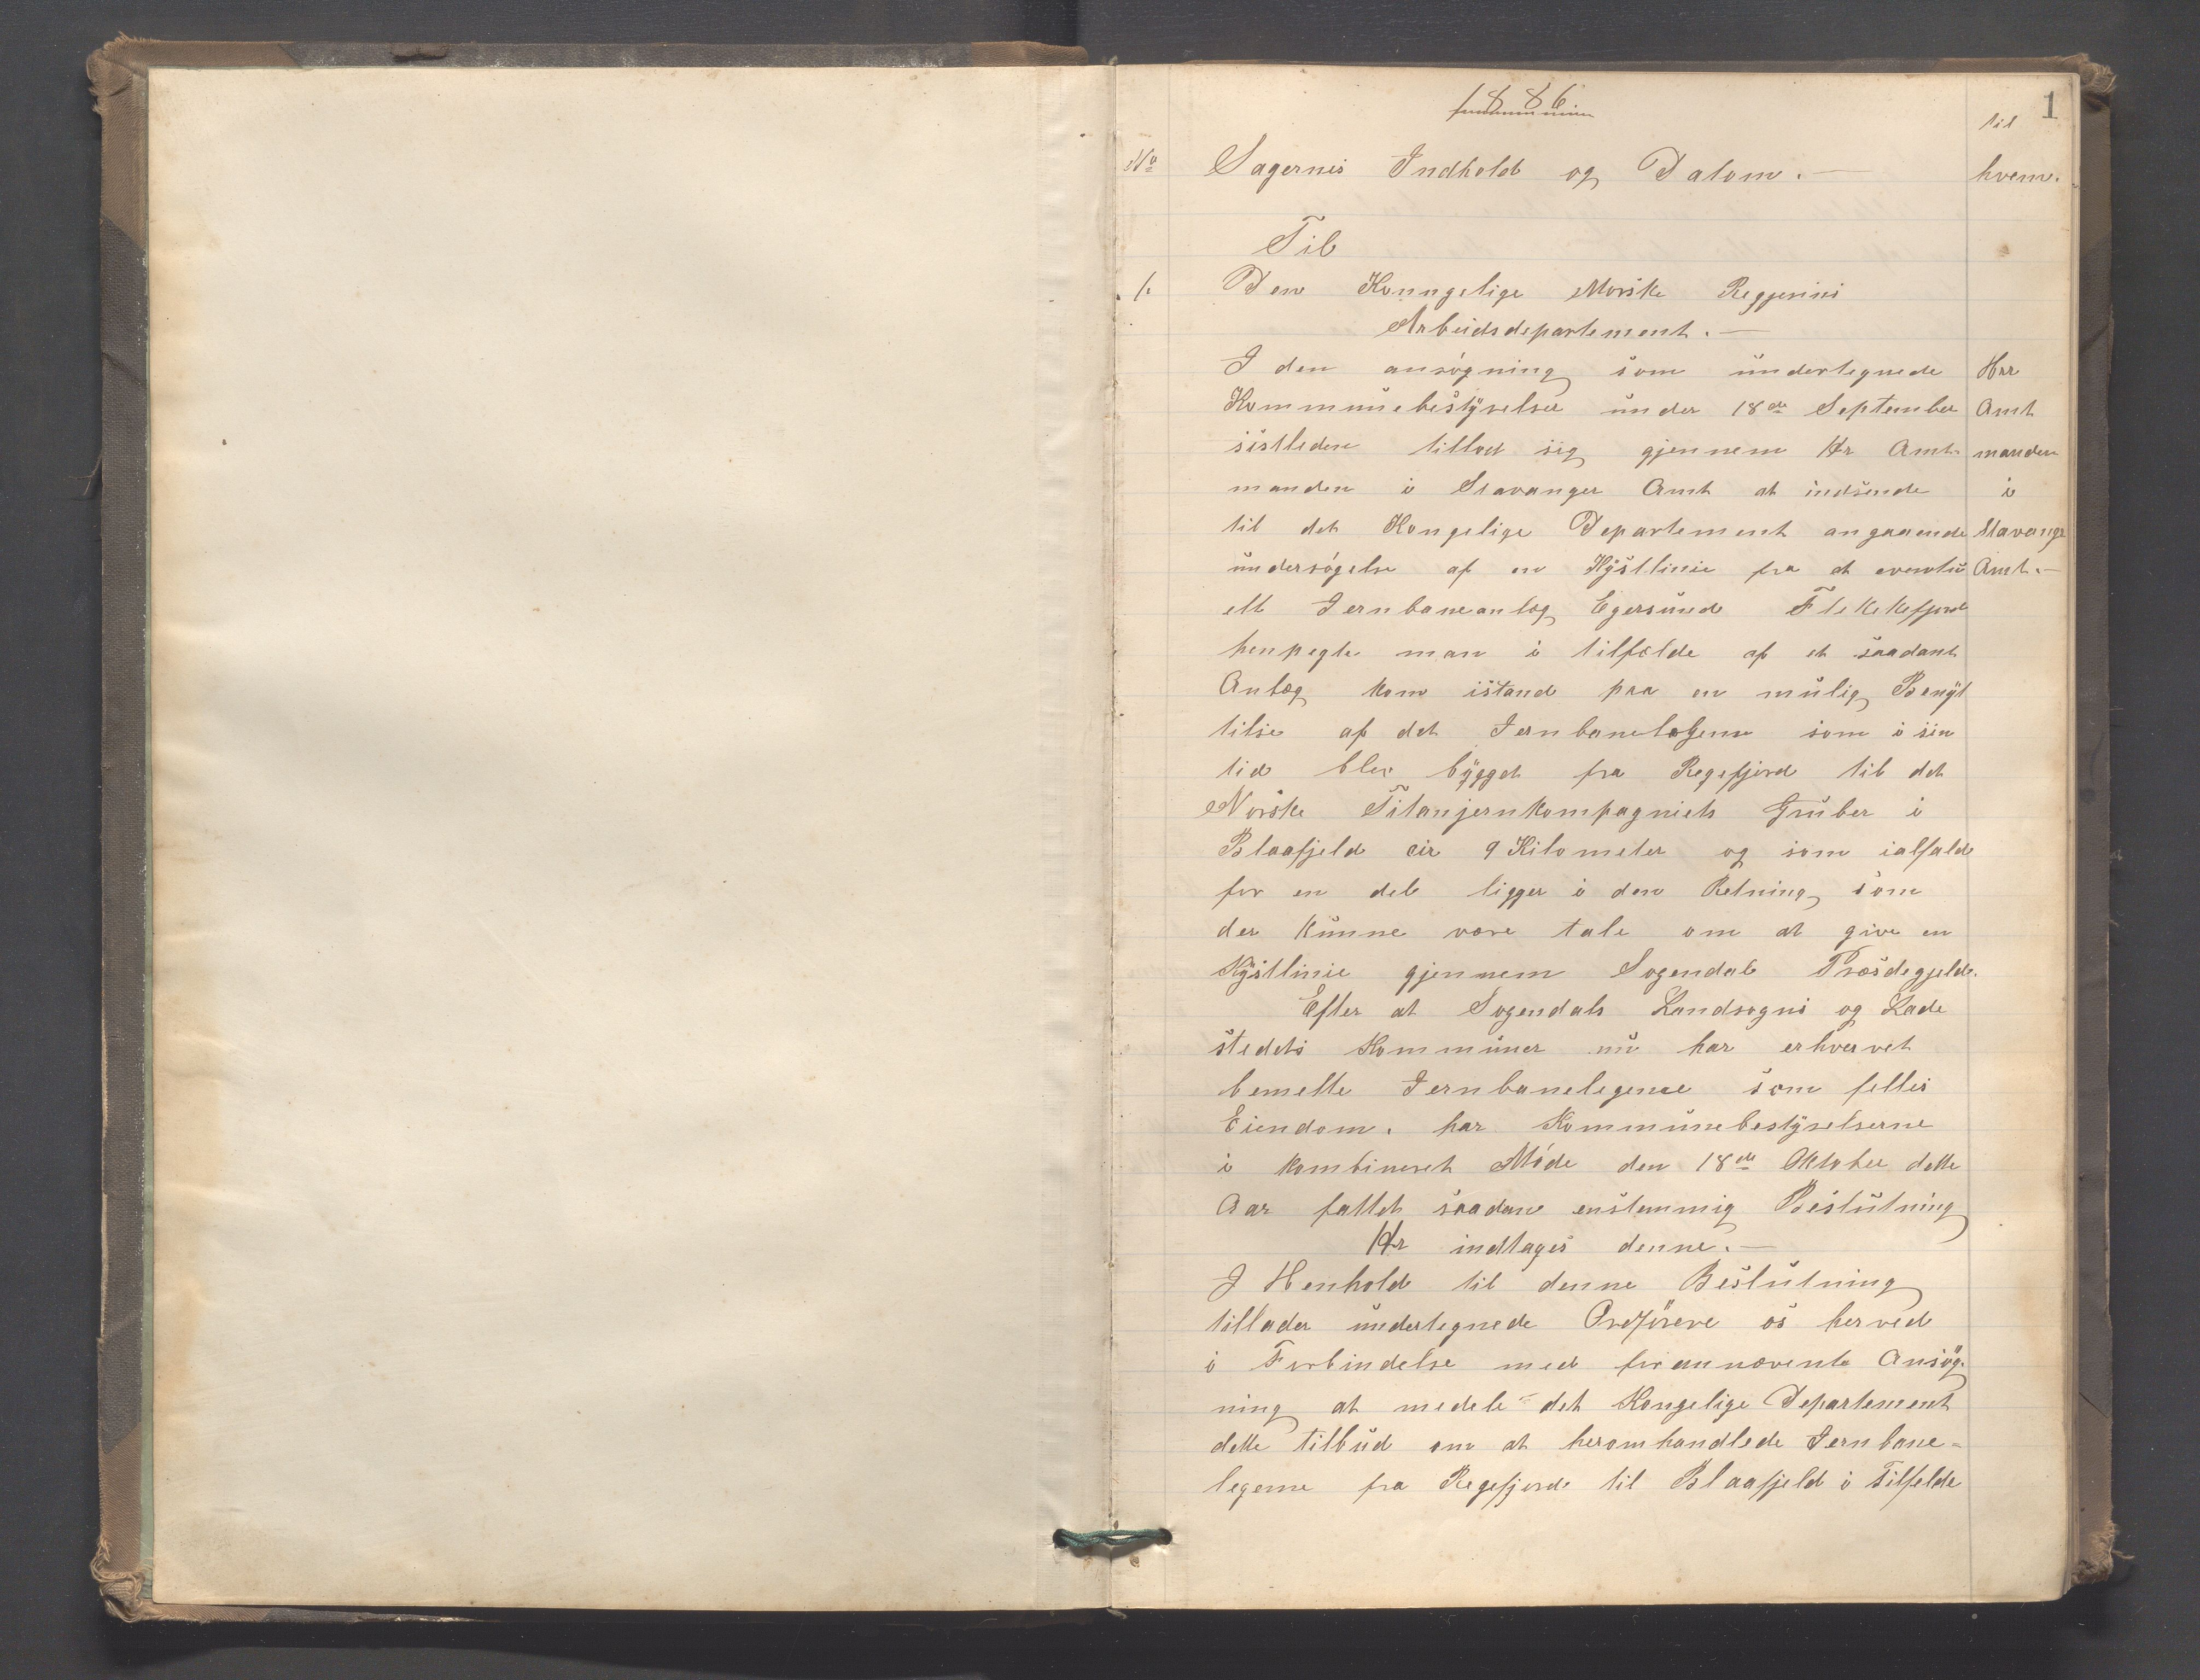 1886.
1
til
No Sagernes Indhold og Datom. — hvem.
Til
1. Den Konngelige Norske Regjerins
Arbeidsdepartement. —
I den ansøgning som undertegnede Hrr
Kommunebestyrelser under 18de September Amt
sistleden tillod sig gjennem Hr Amt- manden
manden i Stavanger Amt at indsende i
til det Kongelige Departement angaaende Stavange
undersøgelse af en Kystlinie fra et eventu Amt. —
elt Jernbaneanlæg Egersund Flekkefjord
henpegte man i tilfælde af et saadant
Anlæg kom istand paa en mulig Benyt
telse af det Jernbanelegeme som i sin
tid blev bygget fra Regefjord til det
Norske Titanjernkompagniets Gruber i
Blaafjeld cir 9 Kilometer og som ialfald
for en del ligger i den Retning som
der kunne være tale om at give en
Kystlinie gjennem Sogendal Præstegjeld.
Efter at Sogendals Landsogns og Lade
stedets Kommuner nu har erhvervet
bemelte Jernbanelegeme som felles
Eiendom. har Kommunebestyrelserne
i kombineret Møde den 18de Oktober dette
Aar fattet saadan enstemmig Beslutning
Hr indtages denne. —
I Henhold til denne Beslutning
tillader undertegnede Ordførere os herved
i Forbindelse med forannævente Ansøg-
ning at medele det Kongelige Departement
dette tilbud om at heromhandlede Jernbane=
legeme fra Regefjord til Blaafjeld i Tilfelde